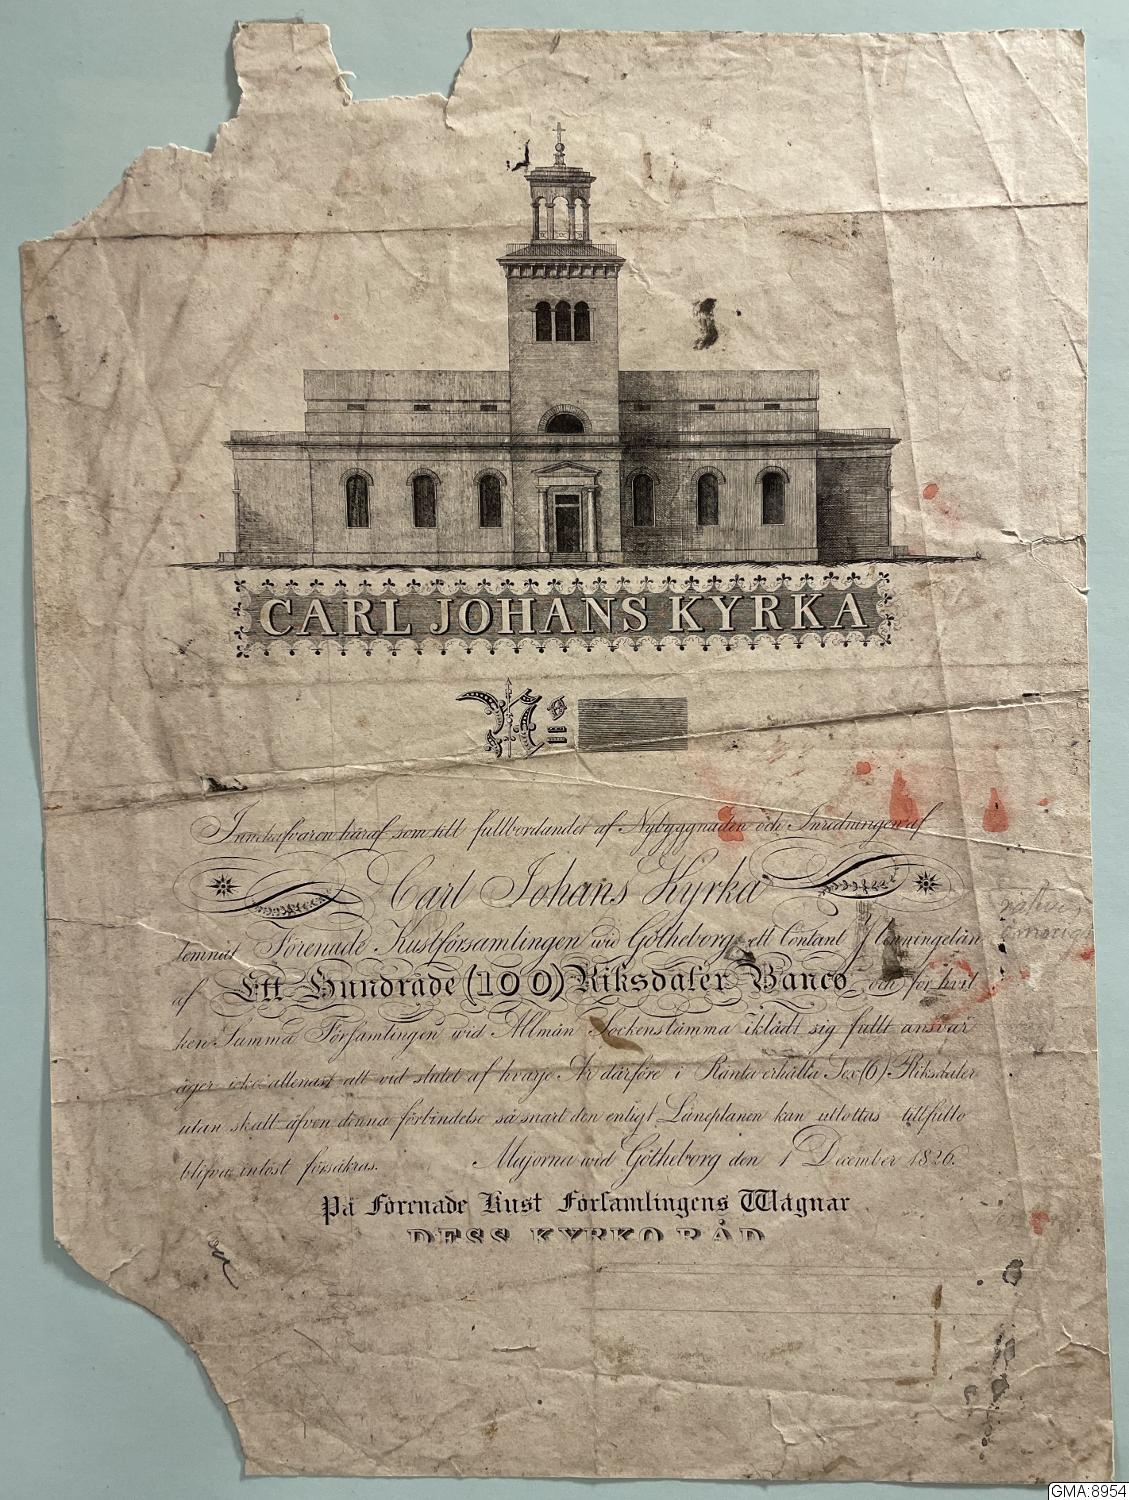 CARL JOHANS KYRKA
No
Innehafvaren häraf som till fullbordandet af Nybyggnaden och Inredningen af
Carl Johans Kyrka
lemnat Förenade Kustförsamlingen wid Götheborg ett Contant Förlänningslån
af Ett Hundrade (100) Riksdaler Banco och för hvil
ken Summa Församlingen wid Allmän Sockenstämma iklädt sig fullt ansvar
äger icke allenast att vid slutet af hvarje År därföre i Ränta erhålla Sex (6) Riksdaler
utan skall äfven denna förbindelse så snart den enligt Låneplanen kan utlottas tillfullo
blifva inlöst försäkras. Majorna wid Götheborg den 1 December 1826.
På Förenade Kust Församlingens Wägnar
DESS KYRKO RÅD
GMA:8954